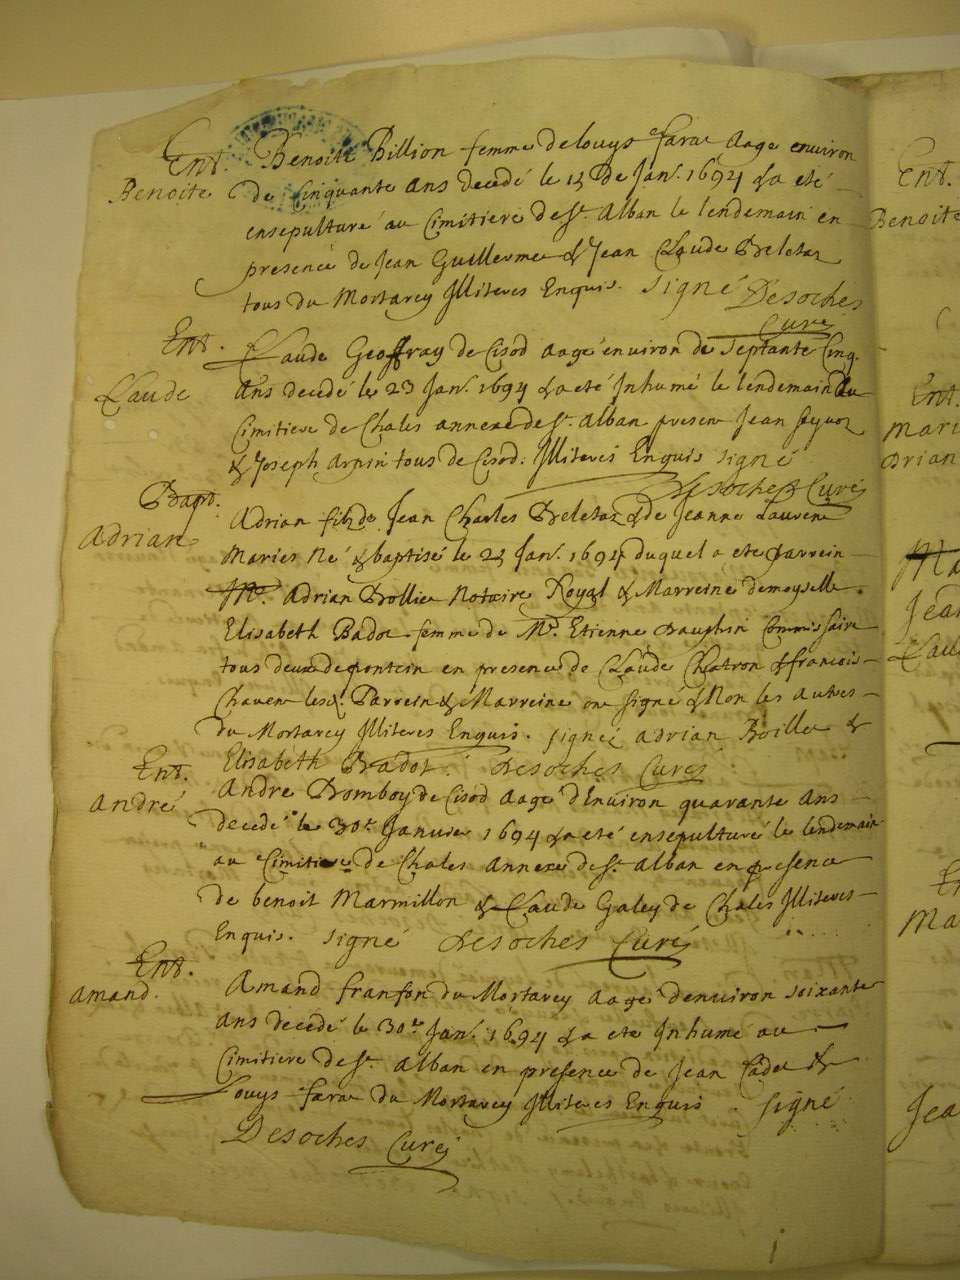 Ent. Benoite Billion femme de Louys farae aage environ
Benoite de Cinquante ans decedé le 15 de Jan. 1694 & a eté
ensepulturé au Cimitiere de St. Alban le lendemain en
presence de Jean Guillerme & Jean Claude Beletaz
tous du Mortarey Illiteres Enquis. signé Desoches
Curé
Ent. Claude Geoffray de Cisod aagé environ de septante Cinq
Claude Ans decedé le 23 Jan. 1694 & a eté Inhumé le lendemain au
Cimitiere de Chales annexe de St. Alban presen Jean
& Joseph tous de Cisod. Illiteres Enquis signé
Desoches Curé
Bapt. Adrian fils de Jean Charles Beletaz & de Jeanne Lauren
Adrian Mariés Né & baptisé le 25 Jan. 1694 duquel a eté parrein
Mr. Adrian Bollie Notaire Royal & Marreine demoyselle
Elisabeth Badot femme de Mr. Etienne Dauphin Commissaire
tous deux de pontein en presence de Claude Chatron & francois
les Parrein & Marreine on signé & Non les autres
du Mortarey Illiteres Enquis. signéé Adrian Boille &
Elisabeth Badot. Desoches Curé
Ent. André Bomboy de Cisod aagé d'Environ quarante Ans
André decedé le 30e Janvier 1694 & a eté ensepulturé le lendemain
au Cimitiere de Chales Annexe de St. Alban en presence
de benoit Marmillon & Claude Galey de Chales Illiteres
Enquis. signé Desoches Curé
Ent. Amand franson du Mortarey aagé denviron soixante
Amand. Ans decedé le 30e Jan. 1694 & a eté Inhumé au
Cimitiere de St. Alban en presence de Jean Cadet &
Louys farae du Mortarey Illiteres Enquis. signé
Desoches Curé
Ent.
Benoite
Ent.